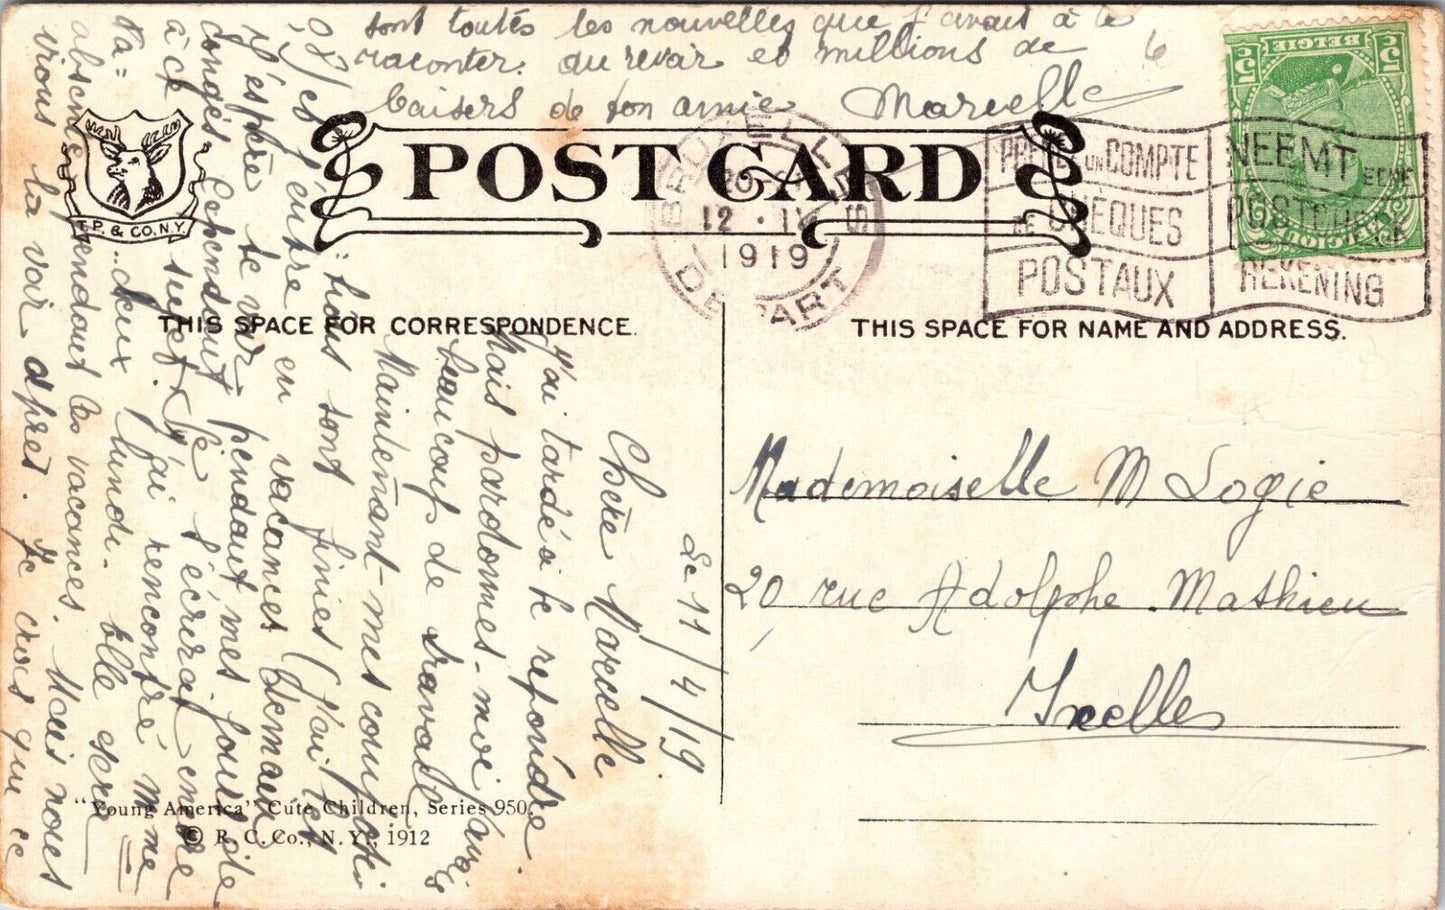 sont toutés les nouvelles que j'avait à te
raconter. au revoir et millions de
baisers de ton amie Marcelle
6
POST CARD
F.P. & CO. N.Y.
BRUXELLES
12 · IV
1919
DEPART
UN COMPTE
DE CHÈQUES
POSTAUX
NEEMT EENE
POSTCHECK
REKENING
BELGIE
5 5
THIS SPACE FOR CORRESPONDENCE.
THIS SPACE FOR NAME AND ADDRESS.
Le 11/4/19
Chère Marcelle
J'ai tardé à te repondre
Mais pardonnes-moi j'avais
beaucoup de travail
Maintenant mes compositi
=tions sont finies (J'ai les
98/ et j'entre en vacances demain
J'espère te voir pendant mes
congés. Cependant je t'écrirai encore
à ce sujet. J'ai rencontré Mme
deux lundi. Elle sera
absente pendant les vacances. Mais nous
irons la voir après. Je crois que ce
Mademoiselle M Logie
20 rue Adolphe Mathieu
Ixelles
"Young America" Cute Children, Series 950.
© R. C. Co., N. Y. 1912